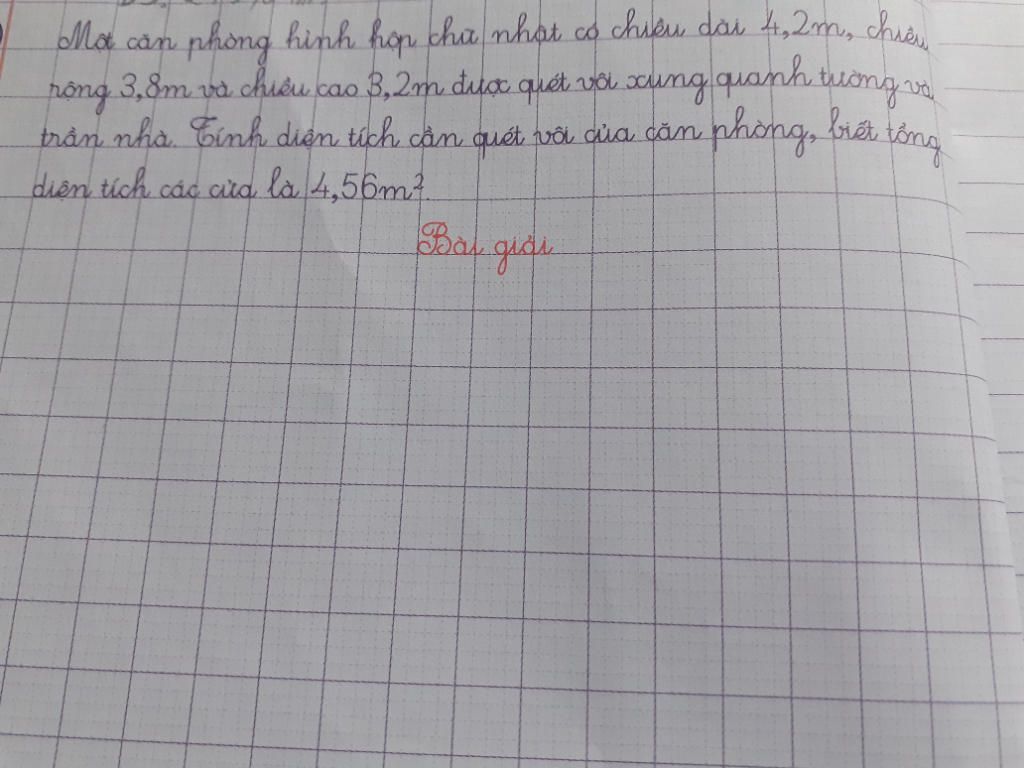 Một căn phòng hình hộp chữ nhật có chiều dài 4,2m, chiều
rộng 3,8m và chiều cao 3,2m được quét vôi xung quanh tường và
trần nhà. Tính diện tích cần quét vôi của căn phòng, biết tổng
diện tích các cửa là 4,56m².
Bài giải